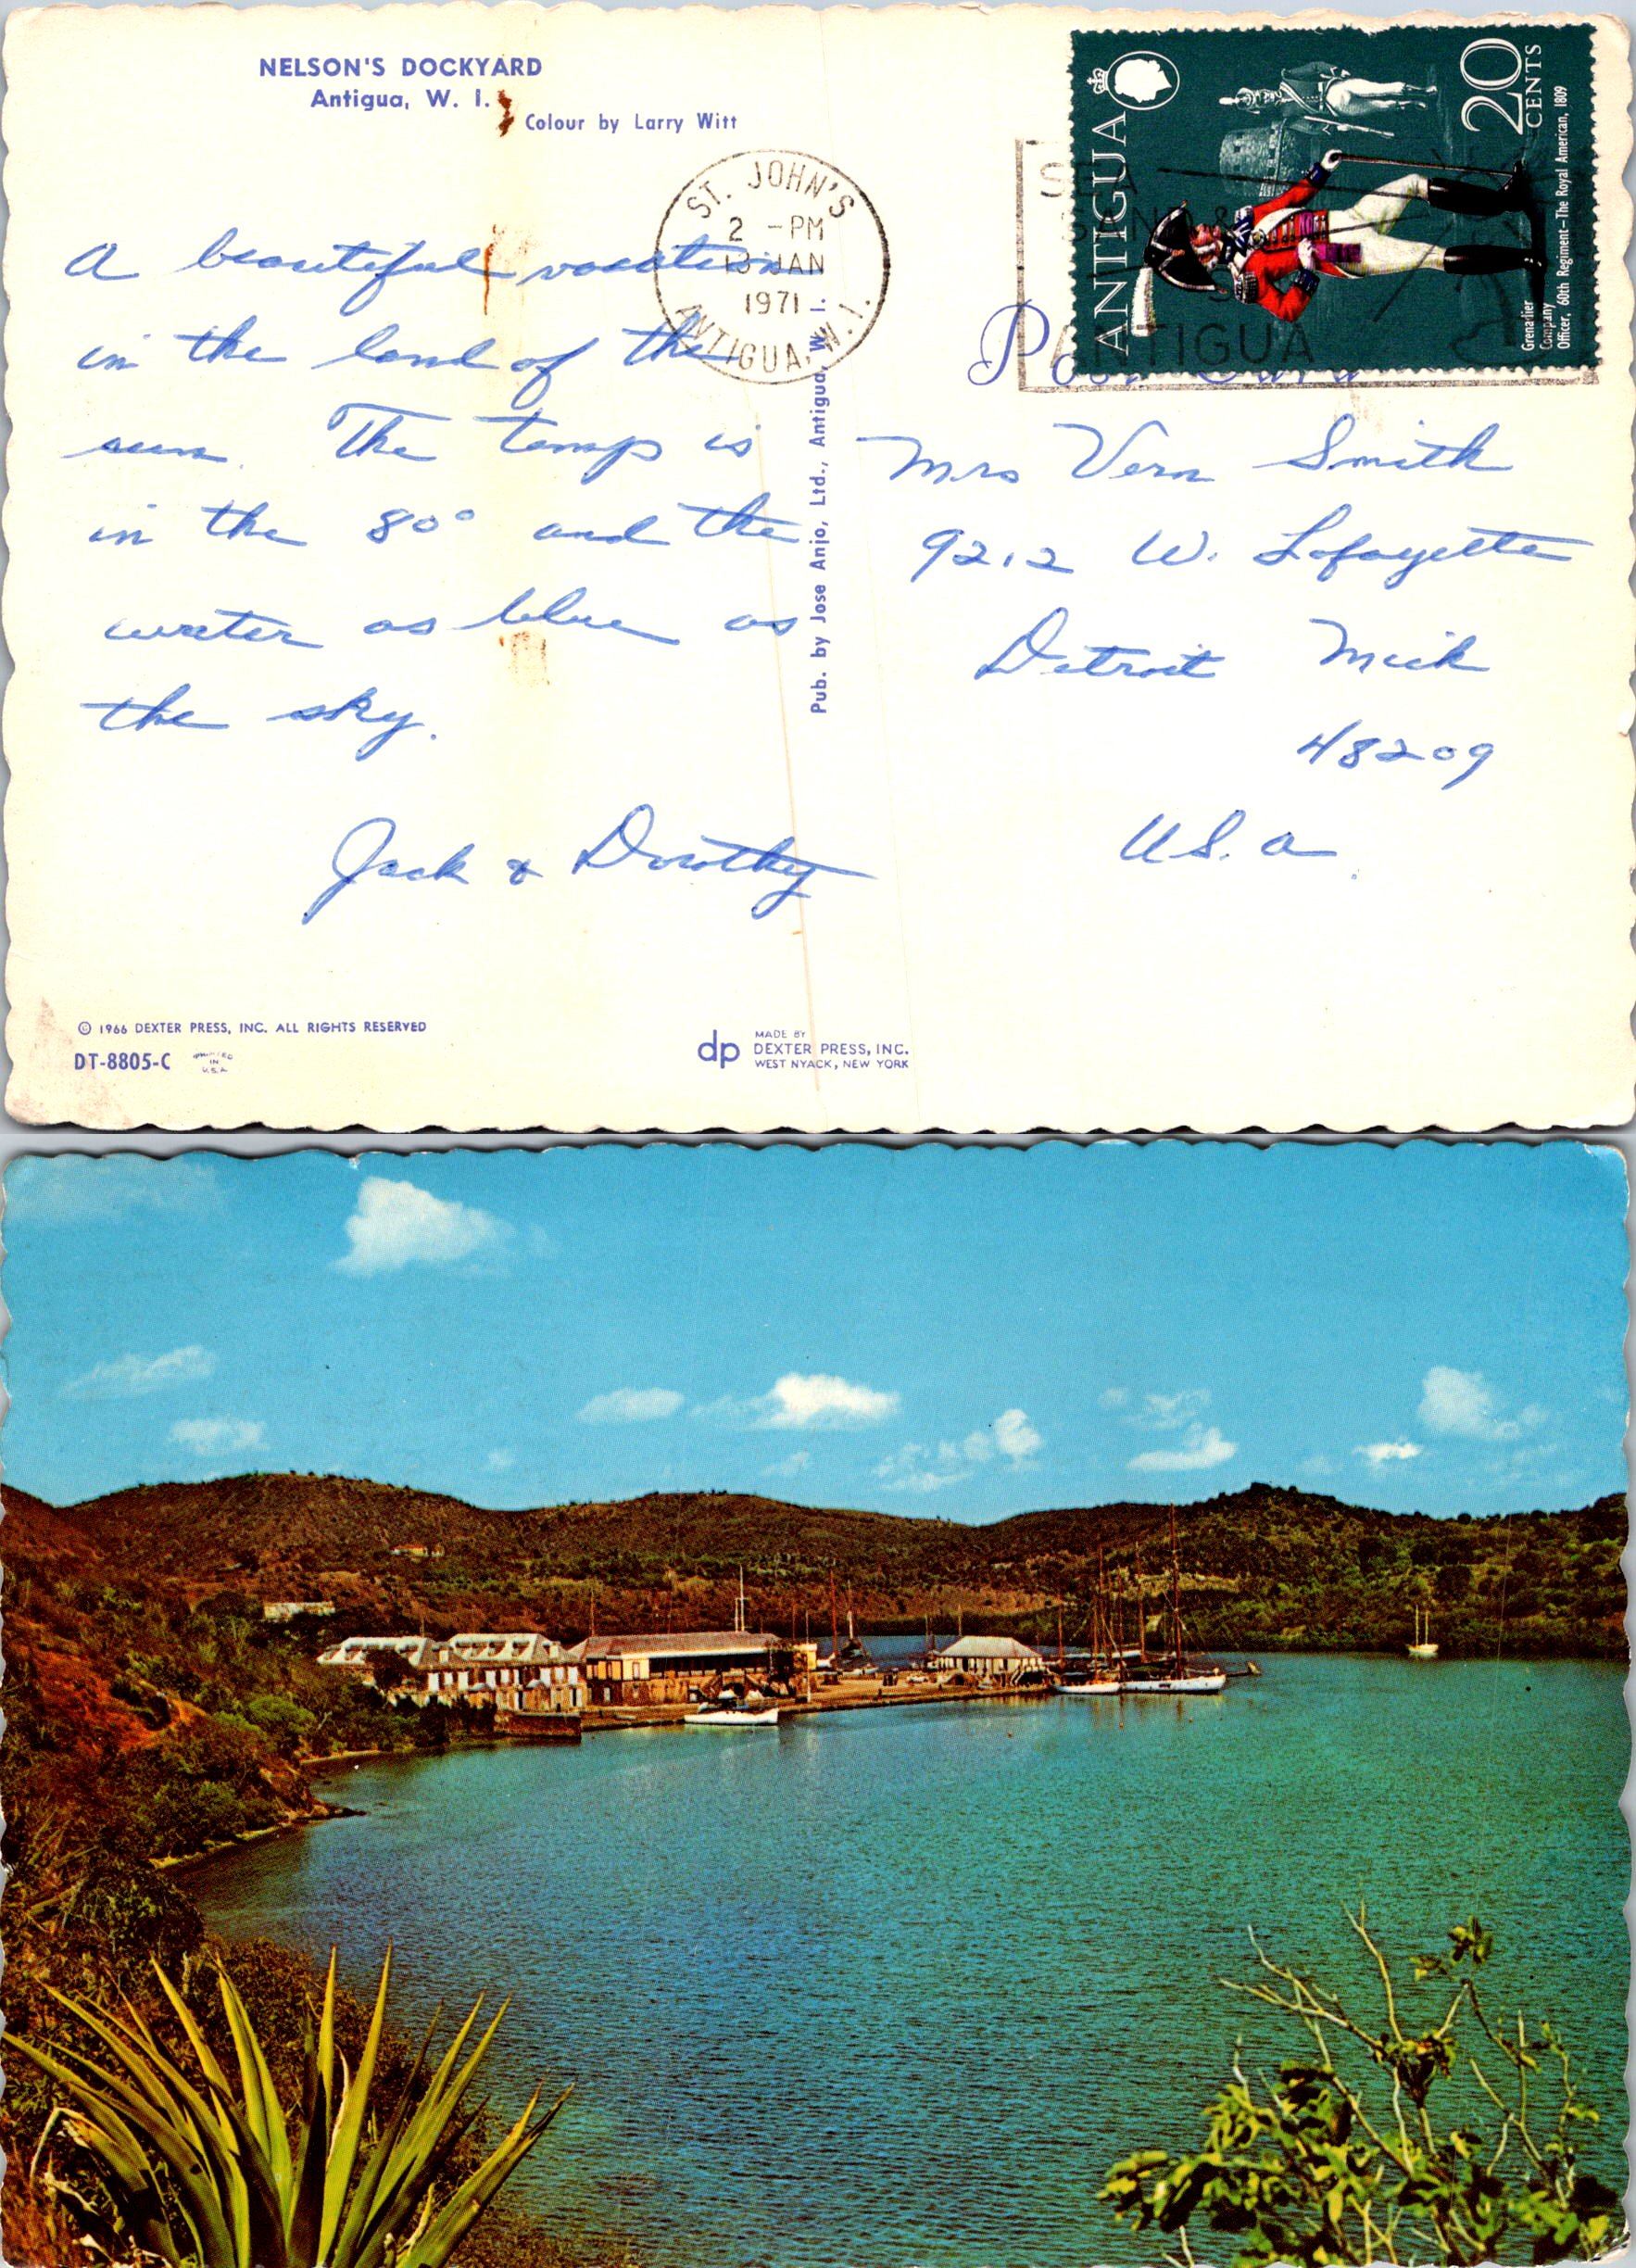 NELSON'S DOCKYARD
Antigua, W. I.
Colour by Larry Witt
ST. JOHN'S
2 -PM
13 JAN
1971
ANTIGUA, W. I.
SEA
SAND &
ANTIGUA
ANTIGUA
20
CENTS
Grenadier
Company
Officer, 60th Regiment-The Royal American, 1809
Post Card
A beautiful vacation
in the land of the
sun. The temp is
in the 80° and the
water as blue as
the sky.
Jack & Dorothy
Pub. by Jose Anjo, Ltd., Antigua, W. I.
Mrs Vern Smith
9212 W. Lafayette
Detroit Mich
48209
U.S.A.
© 1966 DEXTER PRESS, INC. ALL RIGHTS RESERVED
DT-8805-C
PRINTED
IN
U.S.A.
dp
MADE BY
DEXTER PRESS, INC.
WEST NYACK, NEW YORK